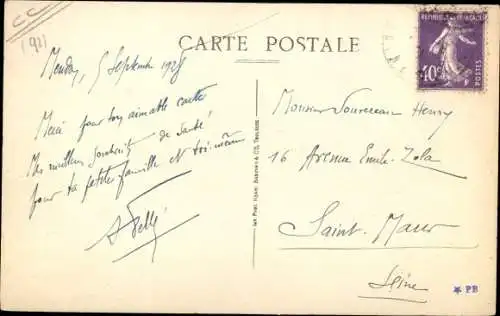 CC
1921
CARTE POSTALE
REPUBLIQUE FRANÇAISE
40c
POSTES
5 Septembre 1928
Merci pour ton aimable carte
Mes meilleurs souhaits de santé
pour ta petite famille et toi-même
Monsieur Souvereau Henry
16 Avenue Emile-Zola
Saint-Maur
Seine
* PB